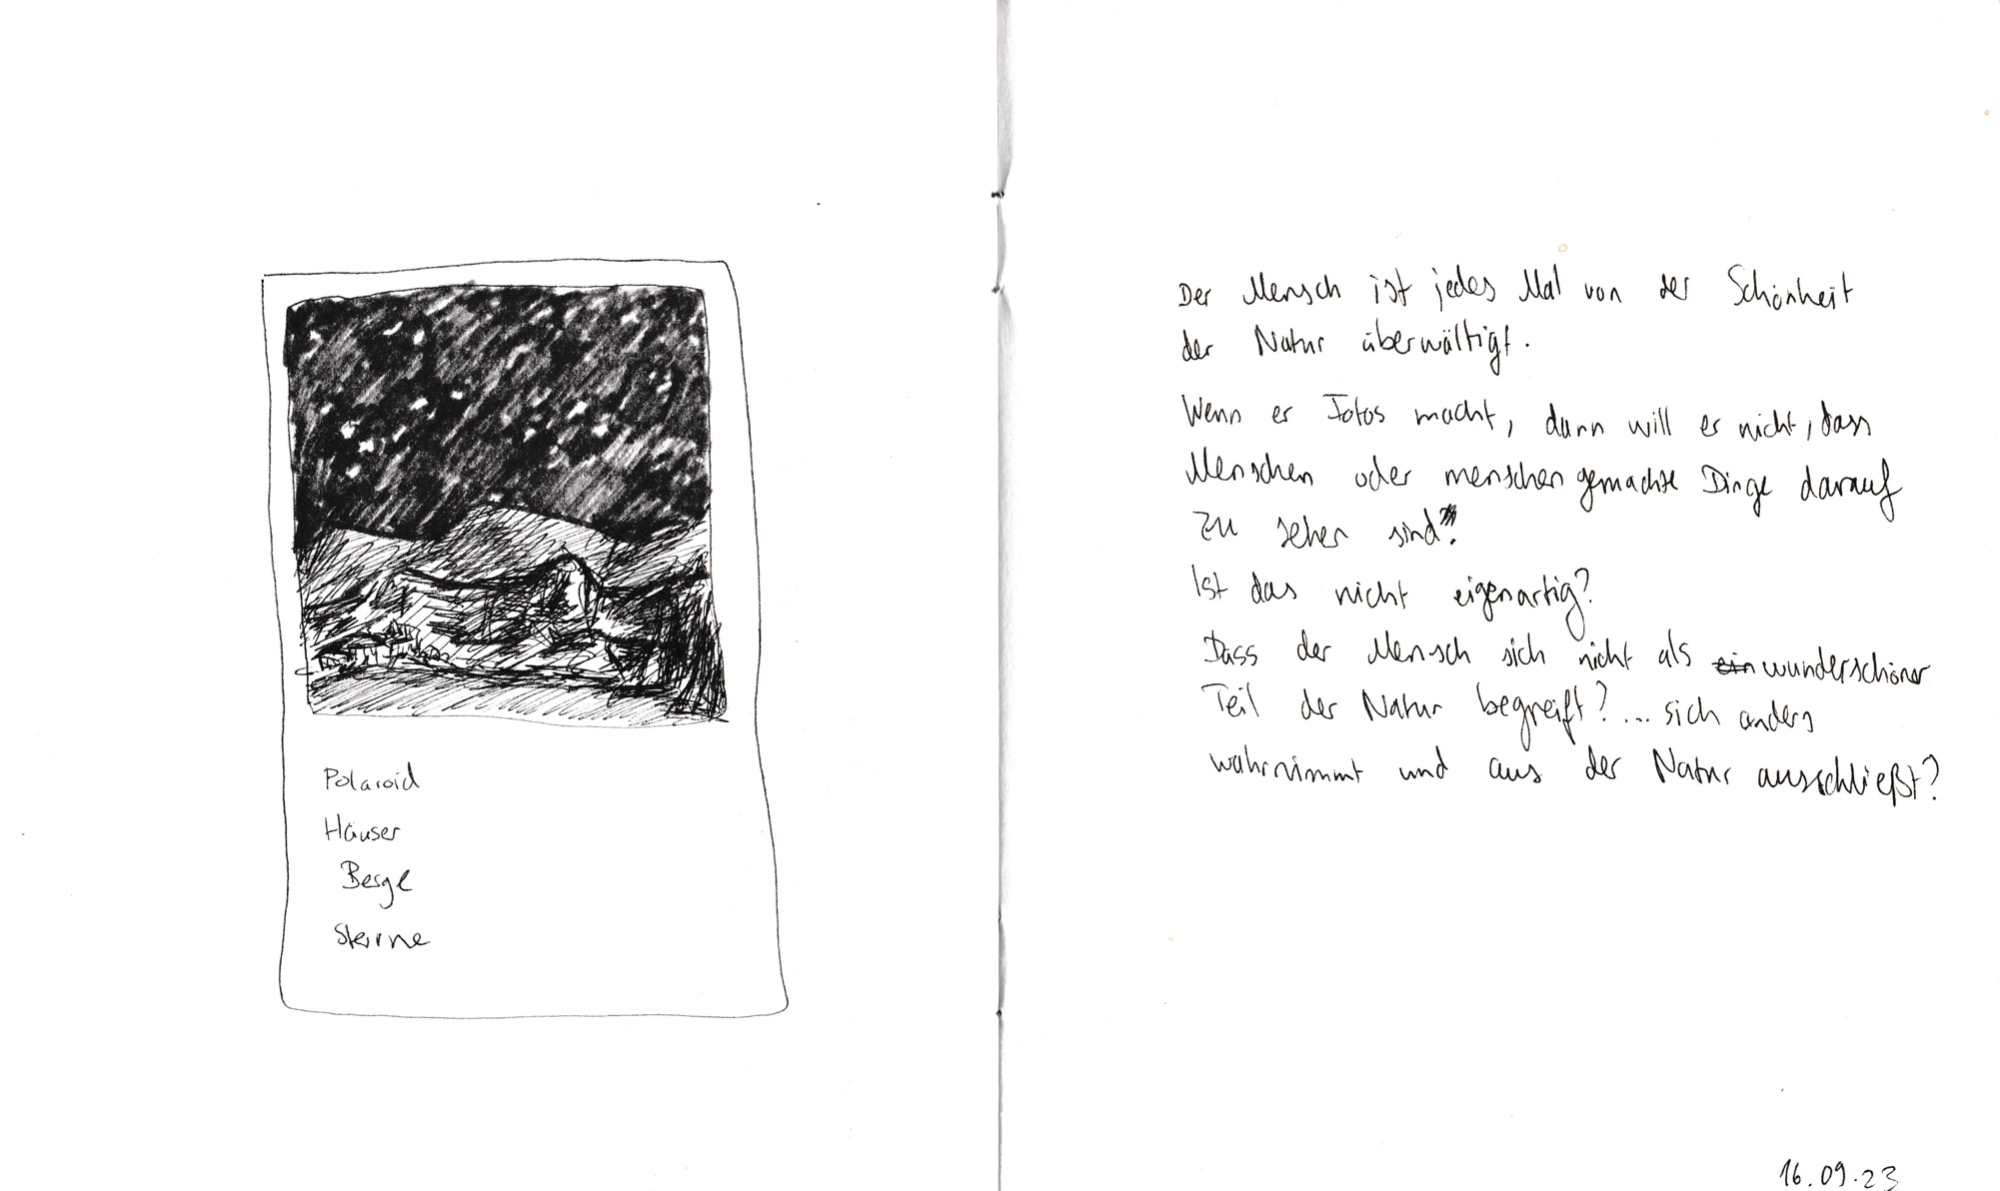 Polaroid
Häuser
Berge
Sterne
Der Mensch ist jedes Mal von der Schönheit
der Natur überwältigt.
Wenn er Fotos macht, dann will er nicht, dass
Menschen oder menschengemachte Dinge darauf
zu sehen sind.
Ist das nicht eigenartig?
Dass der Mensch sich nicht als ein wunderschöner
Teil der Natur begreift? ... sich anders
wahrnimmt und aus der Natur ausschließt?
16.09.23